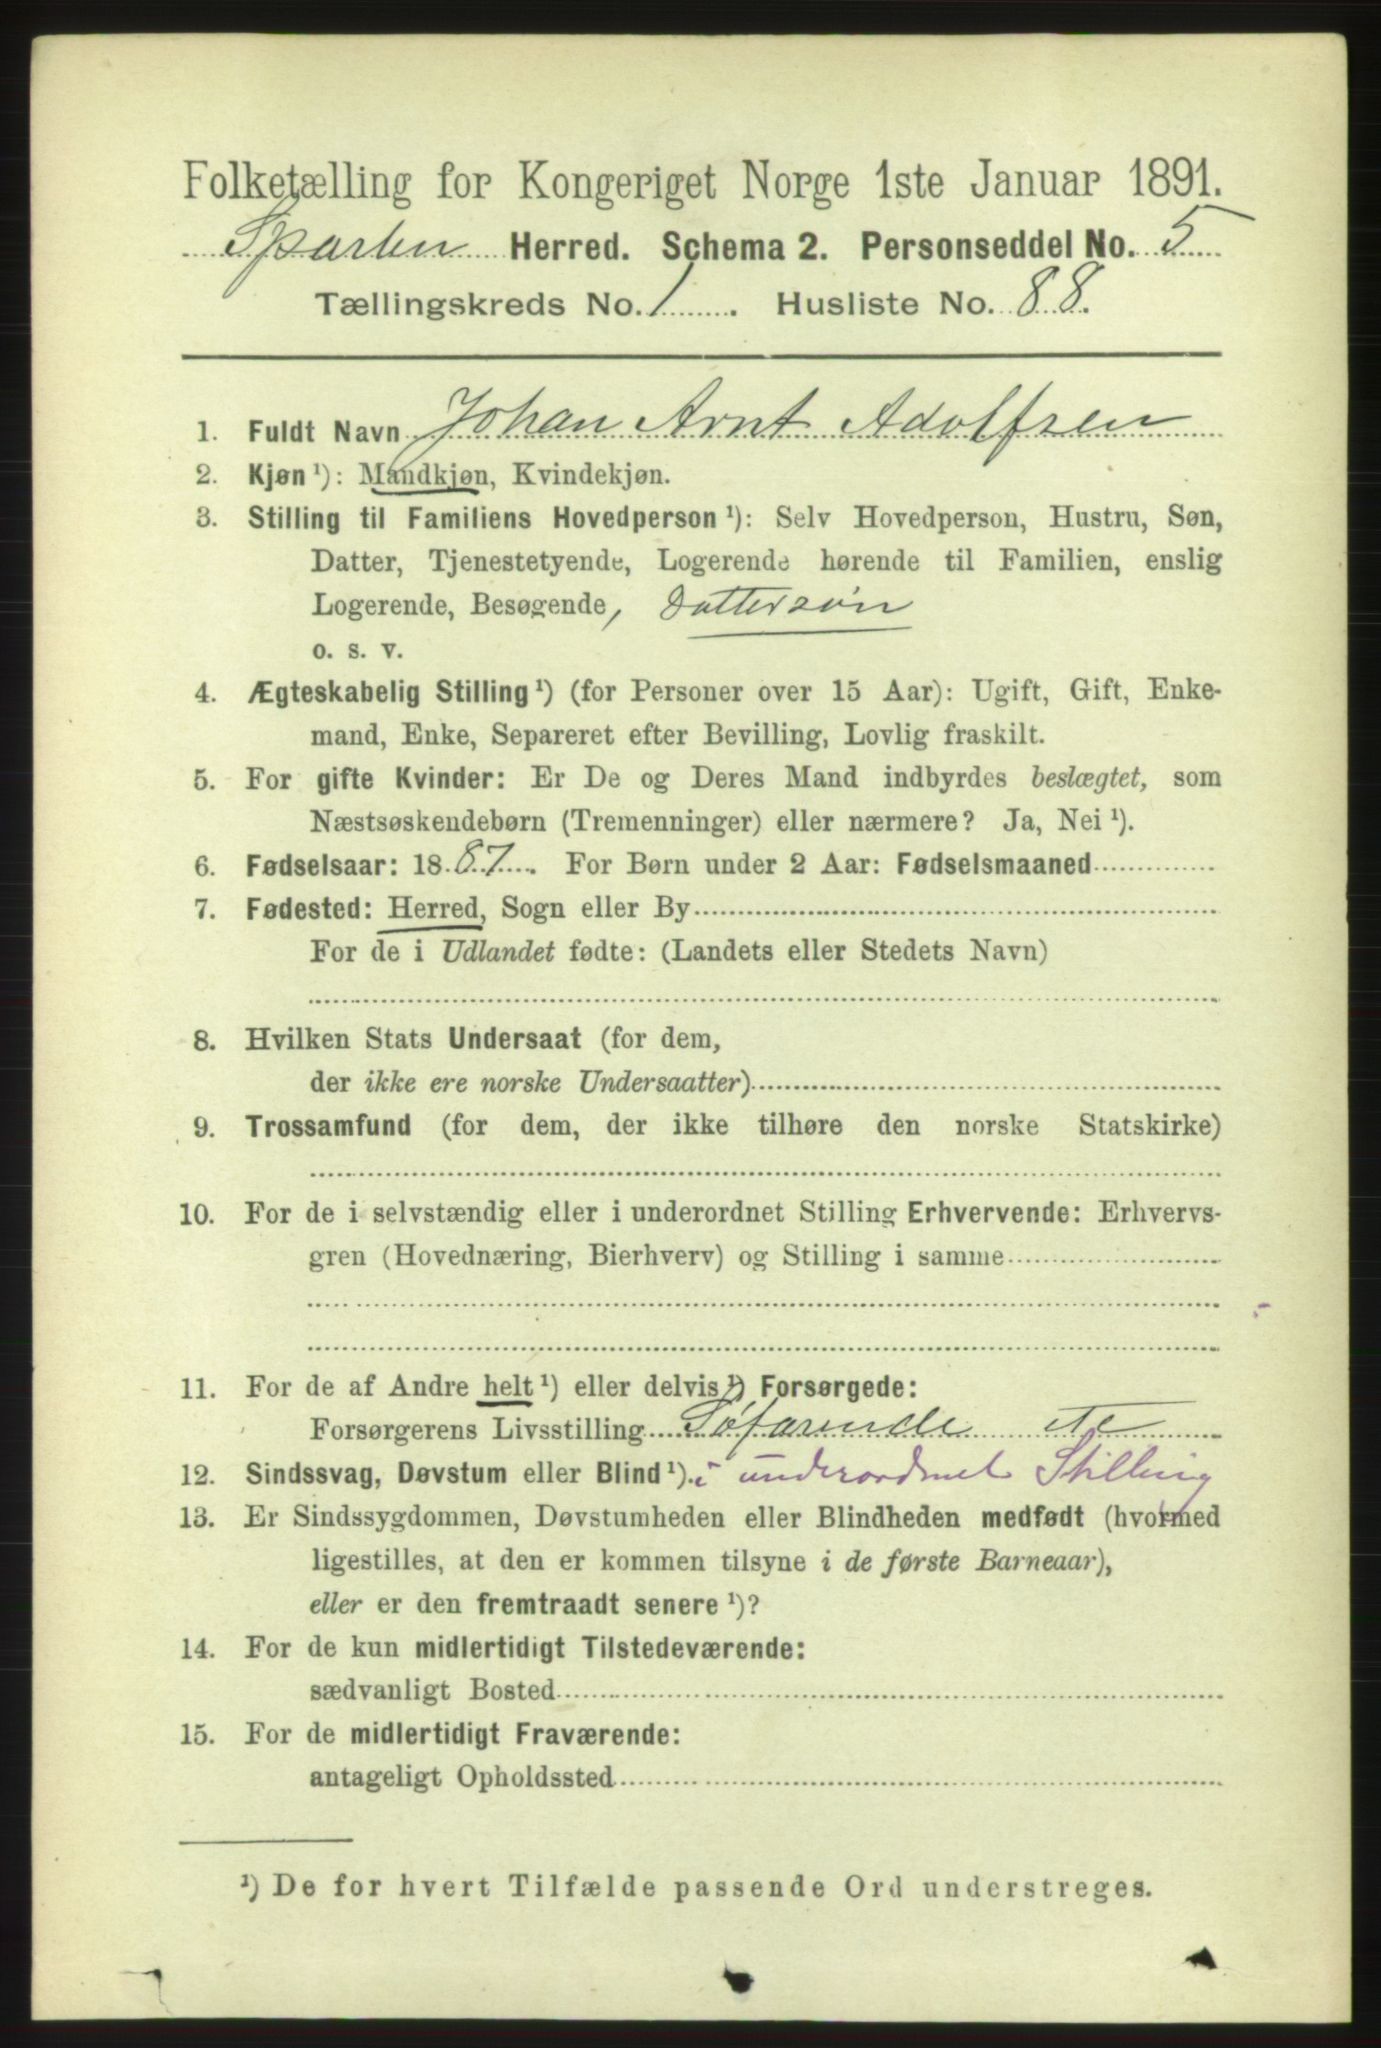 Folketælling for Kongeriget Norge 1ste Januar 1891.
Sparbu Herred. Schema 2. Personseddel No. 5
Tællingskreds No. 1. Husliste No. 88.
1. Fuldt Navn Johan Arnt Adolfsen
2. Kjøn ¹): Mandkjøn, Kvindekjøn.
3. Stilling til Familiens Hovedperson ¹): Selv Hovedperson, Hustru, Søn,
Datter, Tjenestetyende, Logerende hørende til Familien, enslig
Logerende, Besøgende, Dattersøn
o. s. v.
4. Ægteskabelig Stilling ¹) (for Personer over 15 Aar): Ugift, Gift, Enke-
mand, Enke, Separeret efter Bevilling, Lovlig fraskilt.
5. For gifte Kvinder: Er De og Deres Mand indbyrdes beslægtet, som
Næstsøskendebørn (Tremenninger) eller nærmere? Ja, Nei ¹).
6. Fødselsaar: 1887. For Børn under 2 Aar: Fødselsmaaned
7. Fødested: Herred, Sogn eller By
For de i Udlandet fødte: (Landets eller Stedets Navn)
8. Hvilken Stats Undersaat (for dem,
der ikke ere norske Undersaatter)
9. Trossamfund (for dem, der ikke tilhøre den norske Statskirke)
10. For de i selvstændig eller i underordnet Stilling Erhvervende: Erhvervs-
gren (Hovednæring, Bierhverv) og Stilling i samme
11. For de af Andre helt ¹) eller delvis ¹) Forsørgede:
Forsørgerens Livsstilling Søfarende
12. Sindssvag, Døvstum eller Blind ¹). i underordnet Stilling
13. Er Sindssygdommen, Døvstumheden eller Blindheden medfødt (hvormed
ligestilles, at den er kommen tilsyne i de første Barneaar),
eller er den fremtraadt senere ¹)?
14. For de kun midlertidigt Tilstedeværende:
sædvanligt Bosted
15. For de midlertidigt Fraværende:
antageligt Opholdssted
¹) De for hvert Tilfælde passende Ord understreges.